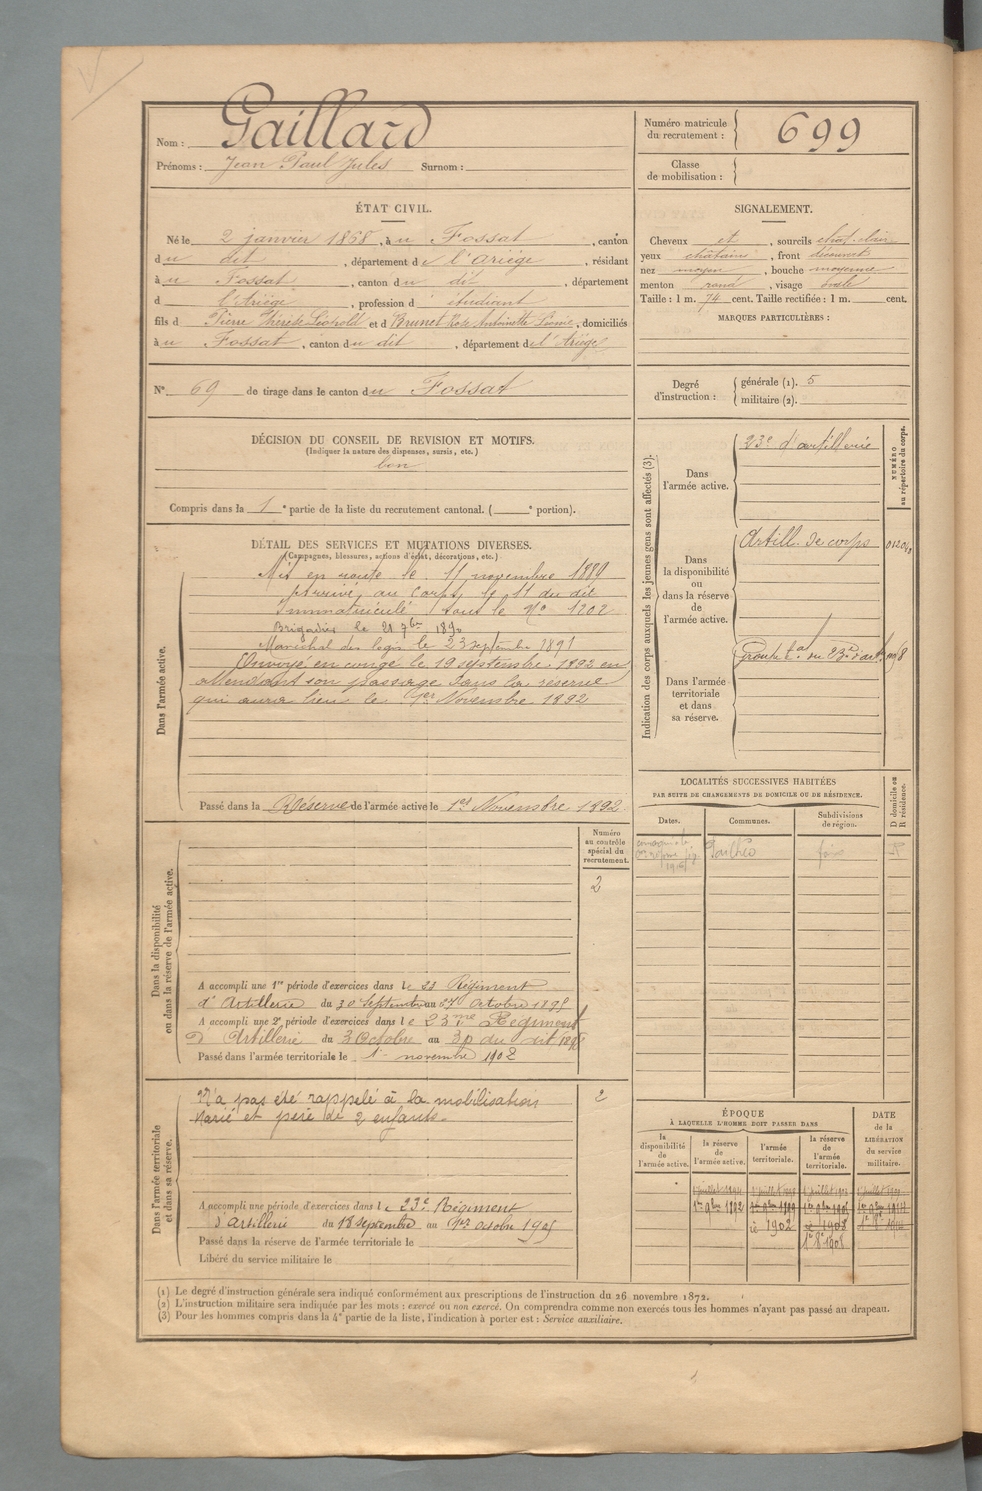 Nom : Gaillard
Prénoms : Jean Paul Jules Surnom :
Numéro matricule du recrutement : 699
Classe de mobilisation :
ÉTAT CIVIL.
Né le 2 janvier 1868, à u Fossat, canton
du dit, département de l'ariège, résidant
à u Fossat, canton du dit, département
d l'Ariège, profession d'étudiant
fils d Pierre Thérèse Léopold et d Brunet Rose Antoinette Léonie, domiciliés
à u Fossat, canton du dit, département de l'Ariège
N° 69 de tirage dans le canton du Fossat
SIGNALEMENT.
Cheveux et, sourcils chat. clair
yeux châtains, front découvert
nez moyen, bouche moyenne
menton rond, visage ovale
Taille : 1 m. 74 cent. Taille rectifiée : 1 m. cent.
MARQUES PARTICULIÈRES :
Degré d'instruction : générale (1). 5
militaire (2).
DÉCISION DU CONSEIL DE REVISION ET MOTIFS.
(Indiquer la nature des dispenses, sursis, etc.)
bon
Compris dans la 1e partie de la liste du recrutement cantonal. ( e portion).
DÉTAIL DES SERVICES ET MUTATIONS DIVERSES.
(Campagnes, blessures, actions d'éclat, décorations, etc.)
Dans l'armée active.
Mis en route le 11 novembre 1889
Arrivé au corps le 11 du dit
Immatriculé sous le N° 1202
Brigadier le 21 7bre 1890
Maréchal des logis le 23 septembre 1891
Envoyé en congé le 19 septembre 1892 en
attendant son passage dans la réserve
qui aura lieu le 1er Novembre 1892
Passé dans la Réserve de l'armée active le 1er Novembre 1892
Indication des corps auxquels les jeunes gens sont affectés (3).
NUMÉRO au répertoire du corps.
Dans l'armée active.
23e d'artillerie
Dans la disponibilité ou dans la réserve de l'armée active.
Artill. de corps
Dans l'armée territoriale et dans sa réserve.
Groupe tal du 23e d'art.
LOCALITÉS SUCCESSIVES HABITÉES
PAR SUITE DE CHANGEMENTS DE DOMICILE OU DE RÉSIDENCE.
Dates.
Communes.
Subdivisions de région.
D domicile ou R résidence.
R
Dans la disponibilité ou dans la réserve de l'armée active.
Numéro au contrôle spécial du recrutement.
2
A accompli une 1re période d'exercices dans le 23 Régiment
d'Artillerie du 30 septembre au 27 Octobre 1895
A accompli une 2e période d'exercices dans le 23me Régiment
d'Artillerie du 3 Octobre au 30 du dit
Passé dans l'armée territoriale le 1er novembre 1902
Dans l'armée territoriale et dans sa réserve.
2
N'a pas été rappelé à la mobilisation
Marié et père de 2 enfants.
A accompli une période d'exercices dans le 23e Régiment
d'artillerie du 18 septembre au 1er octobre 1905
Passé dans la réserve de l'armée territoriale le
Libéré du service militaire le
ÉPOQUE
À LAQUELLE L'HOMME DOIT PASSER DANS
la disponibilité de l'armée active.
la réserve de l'armée active.
l'armée territoriale.
la réserve de l'armée territoriale.
DATE de la LIBÉRATION du service militaire.
1er 9bre 1892
1902
1908
(1) Le degré d'instruction générale sera indiqué conformément aux prescriptions de l'instruction du 26 novembre 1872.
(2) L'instruction militaire sera indiquée par les mots : exercé ou non exercé. On comprendra comme non exercés tous les hommes n'ayant pas passé au drapeau.
(3) Pour les hommes compris dans la 4e partie de la liste, l'indication à porter est : Service auxiliaire.